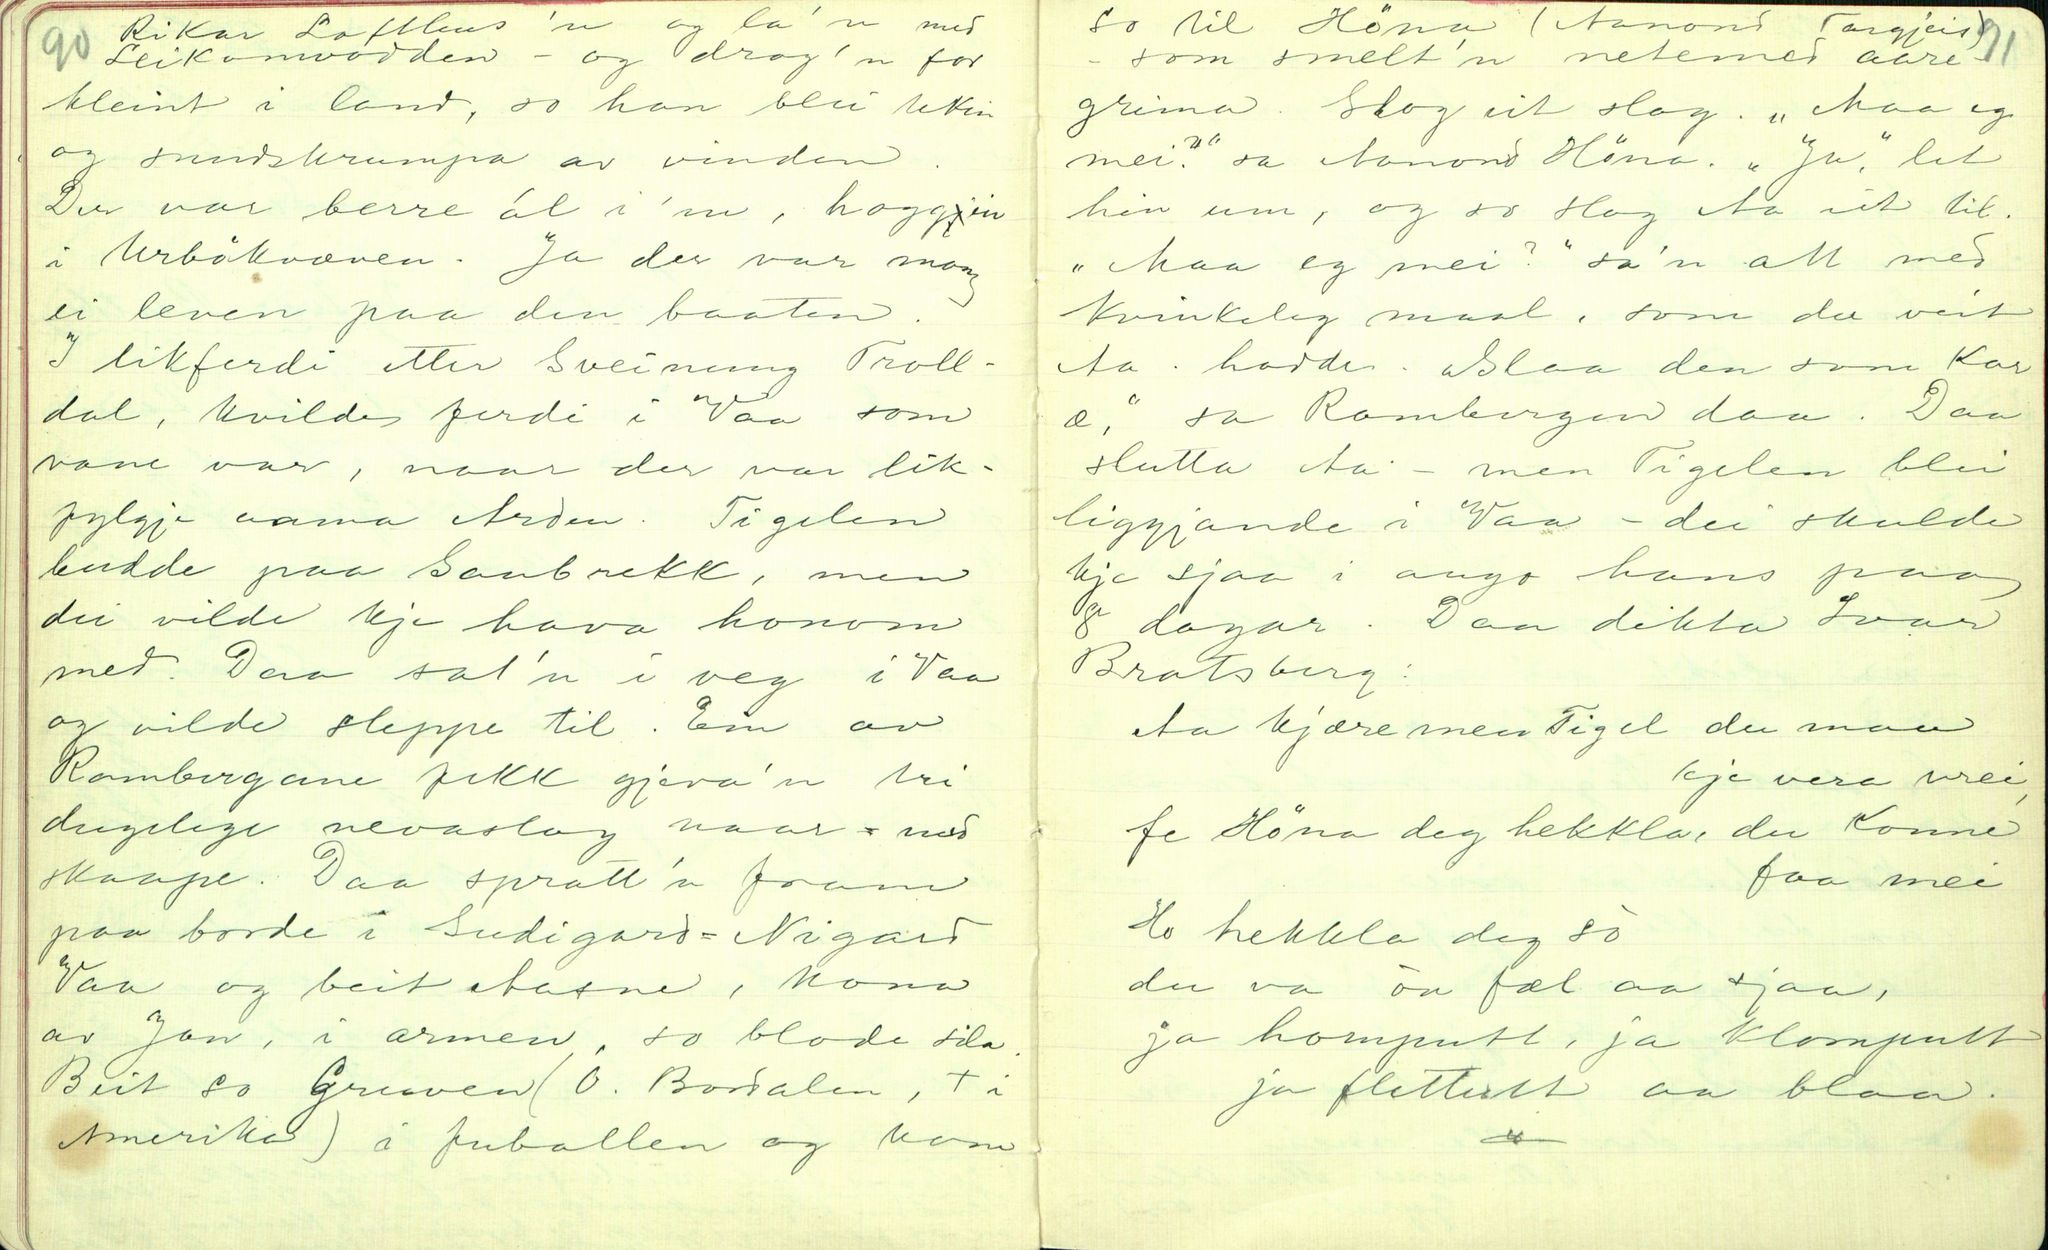 90
Rikar Lofthus'n og la'n med
Leikomvodden - og drog'n for
kleint i land, so han blei tekin
og sundskrumpa av vinden.
Der var berre ál i'm, hoggjin
i Urbökvæven. Ja der var mang
ei leven paa den baaten.
I likferdi etter Sveinung Troll-
dal, kvilde ferdi i Vaa som
vane var, naar der var lik-
fylgje aama Arden. Tigelen
budde paa Saubrekk, men
dei vilde kje hava honom
med. Daa sat'n i veg i Vaa
og vilde sleppe til. Ein av
Rambergane fekk gjeva'n tri
dugelege nevaslag naar = ned
skaape. Daa spratt'n fram
paa borde i Sudigard = Nigard
Vaa og beit Aasne, kona
av Jon, i armen, so blode sila.
Beit so Greiven (O. Bordalen, † i
Amerika) i fuballen og kom
91
so til Höna (Aanond Targjeis)
- som smelt'n netemed aare-
grima. Slog eit slag. „Maa eg
mei?" sa Aanond Höna. „Ja," let
hin um, og so slog Aa eit til.
„Maa eg mei?" sa'n att med
kvinkeleg maal, som du veit
Aa. hadde. „Slaa den som kar
æ," sa Rambergen daa. Daa
slutta Aa - men Tigelen blei
liggjande i Vaa - dei skulde
kje sjaa i augo hans paa
8 dagar. Daa dikta Ivar
Bratsberg:
Aa kjære men Tigel du maa
kje vera vrei,
fe Höna deg hekkla, du konne
faa mei
Ho hekkla deg sò
du va òa fæl aa sjaa,
ja homputt, ja klomputt
ja flettutt aa blaa.